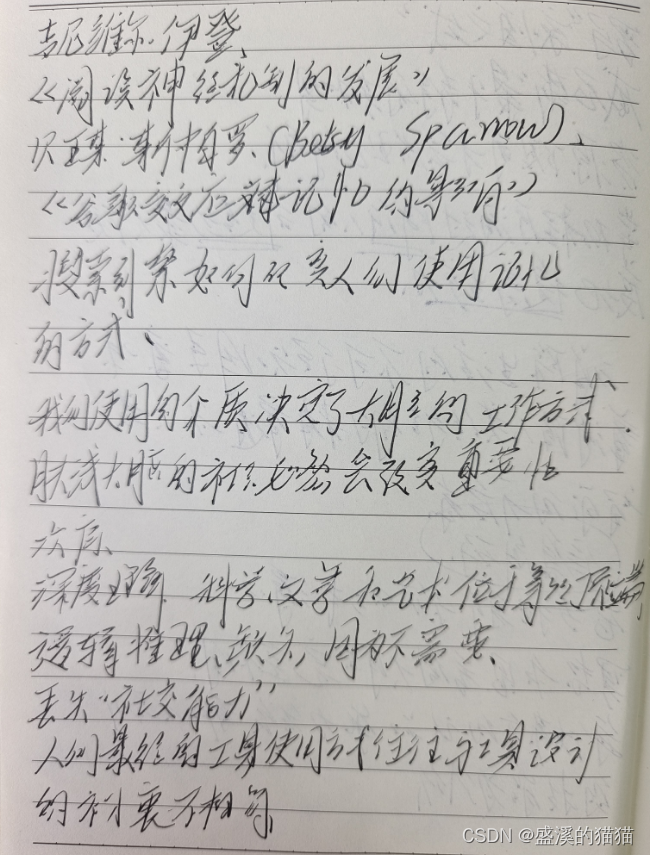 吉尼维尔·伊登
《阅读神经机制的发展》
贝茜·斯帕罗、(Betsy Sparrow)、
《谷歌效应对记忆的影响》
搜索引擎如何改变人们使用记忆
的方式、
我们使用的介质决定了大脑的工作方式.
肤浅大脑的社会必然会改变重要性
次序、
深度理解 科学、文学和艺术位于等级顶端
逻辑推理、缺失, 因为不需要、
丢失“社交能力”
人们最终的工具使用方式往往与工具设计
的初衷不相符、
CSDN @盛溪的猫猫